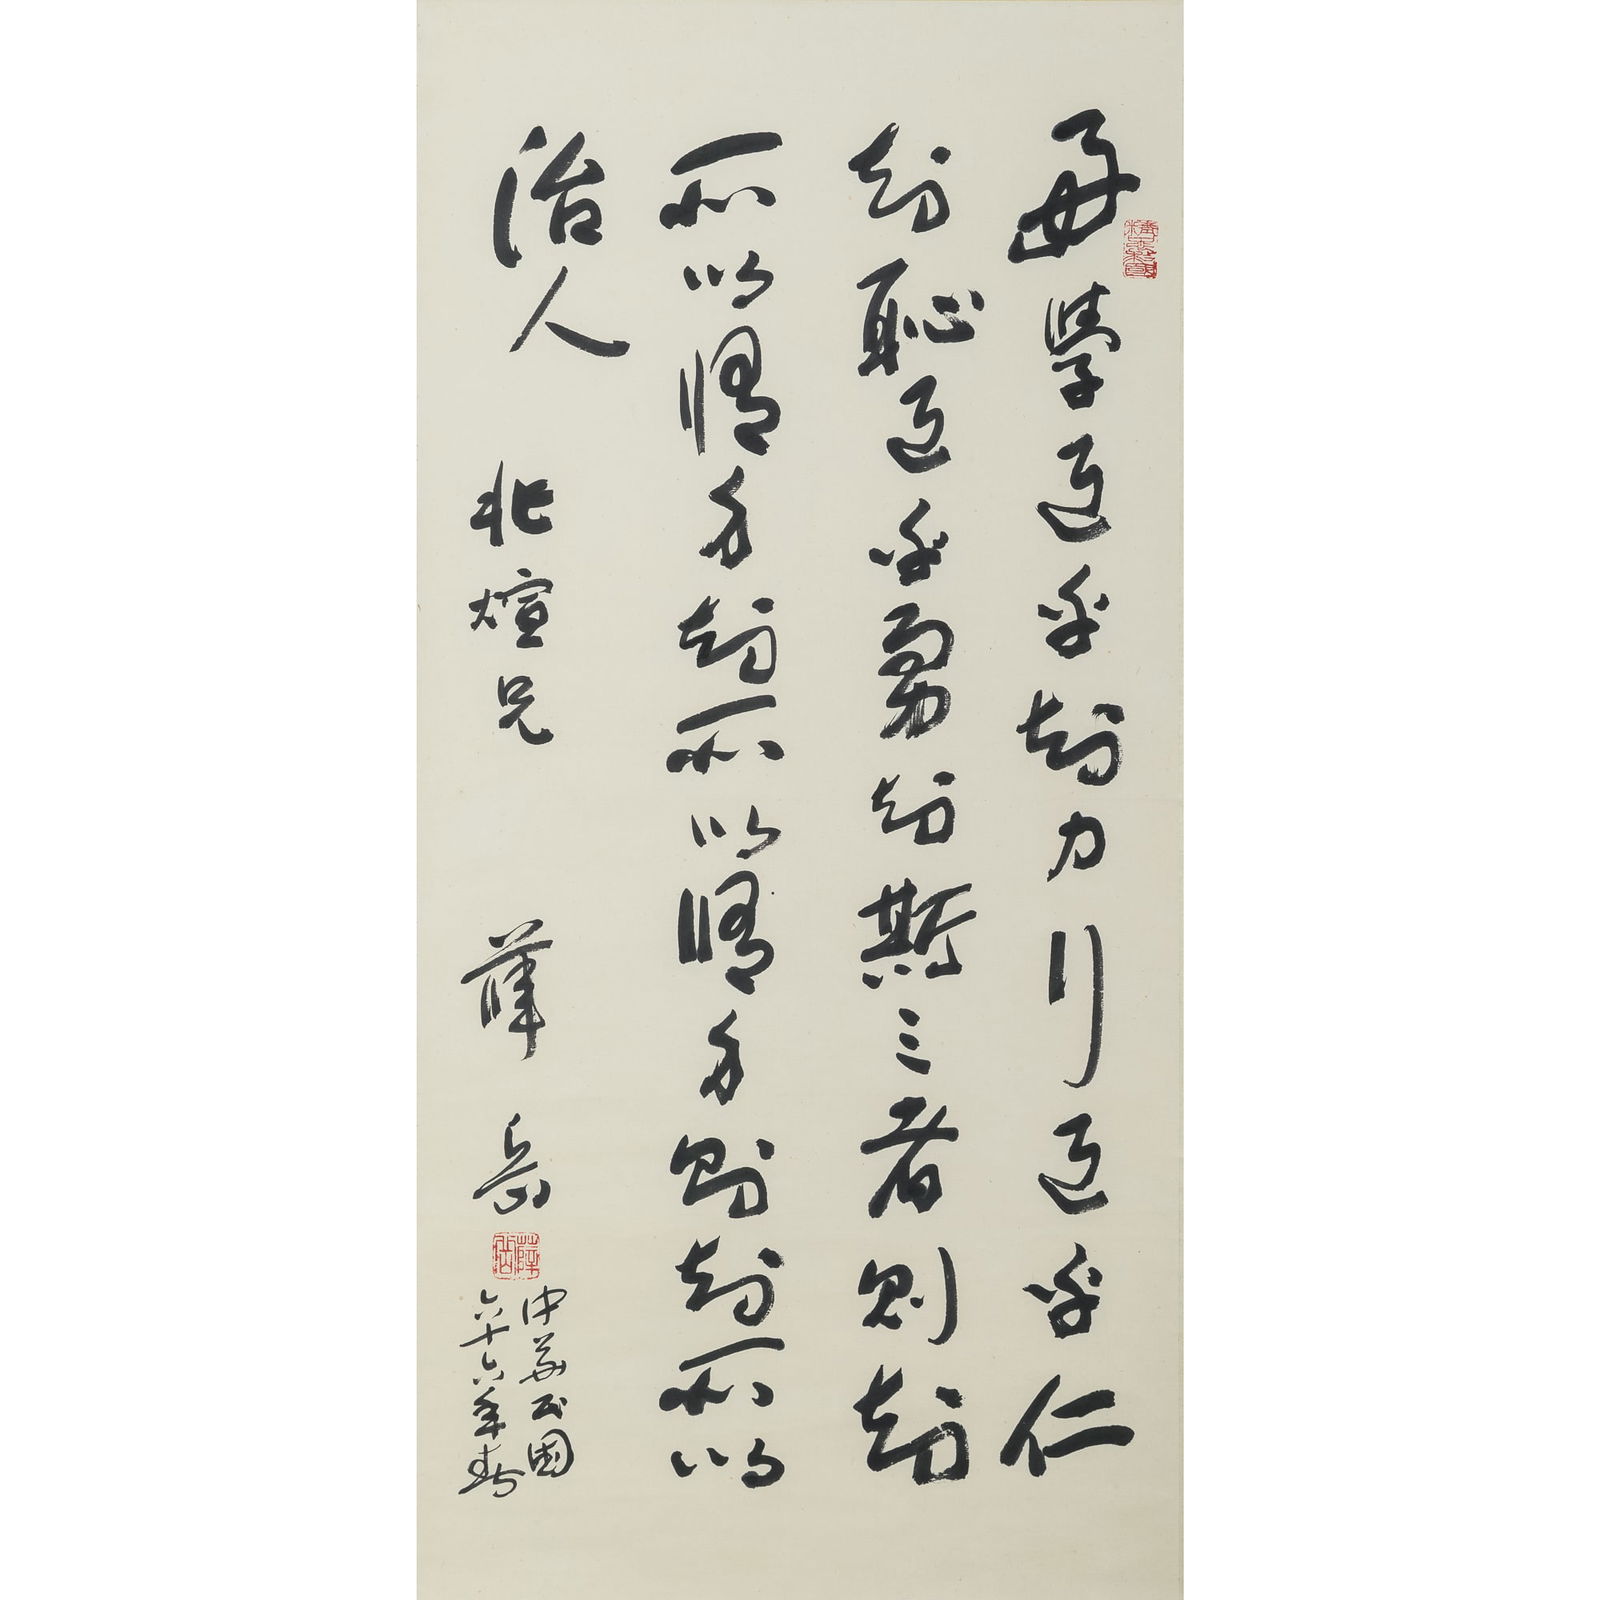 好學近乎知力行近乎仁
知恥近乎勇知斯三者則知
所以脩身知所以脩身則知所以
治人 北煊兄 薛岳
中華民國
六十六年春
精忠報國
薛岳